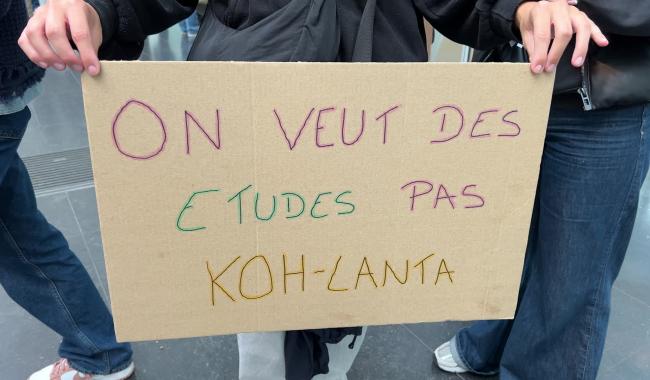 ON VEUT DES
ETUDES PAS
KOH-LANTA